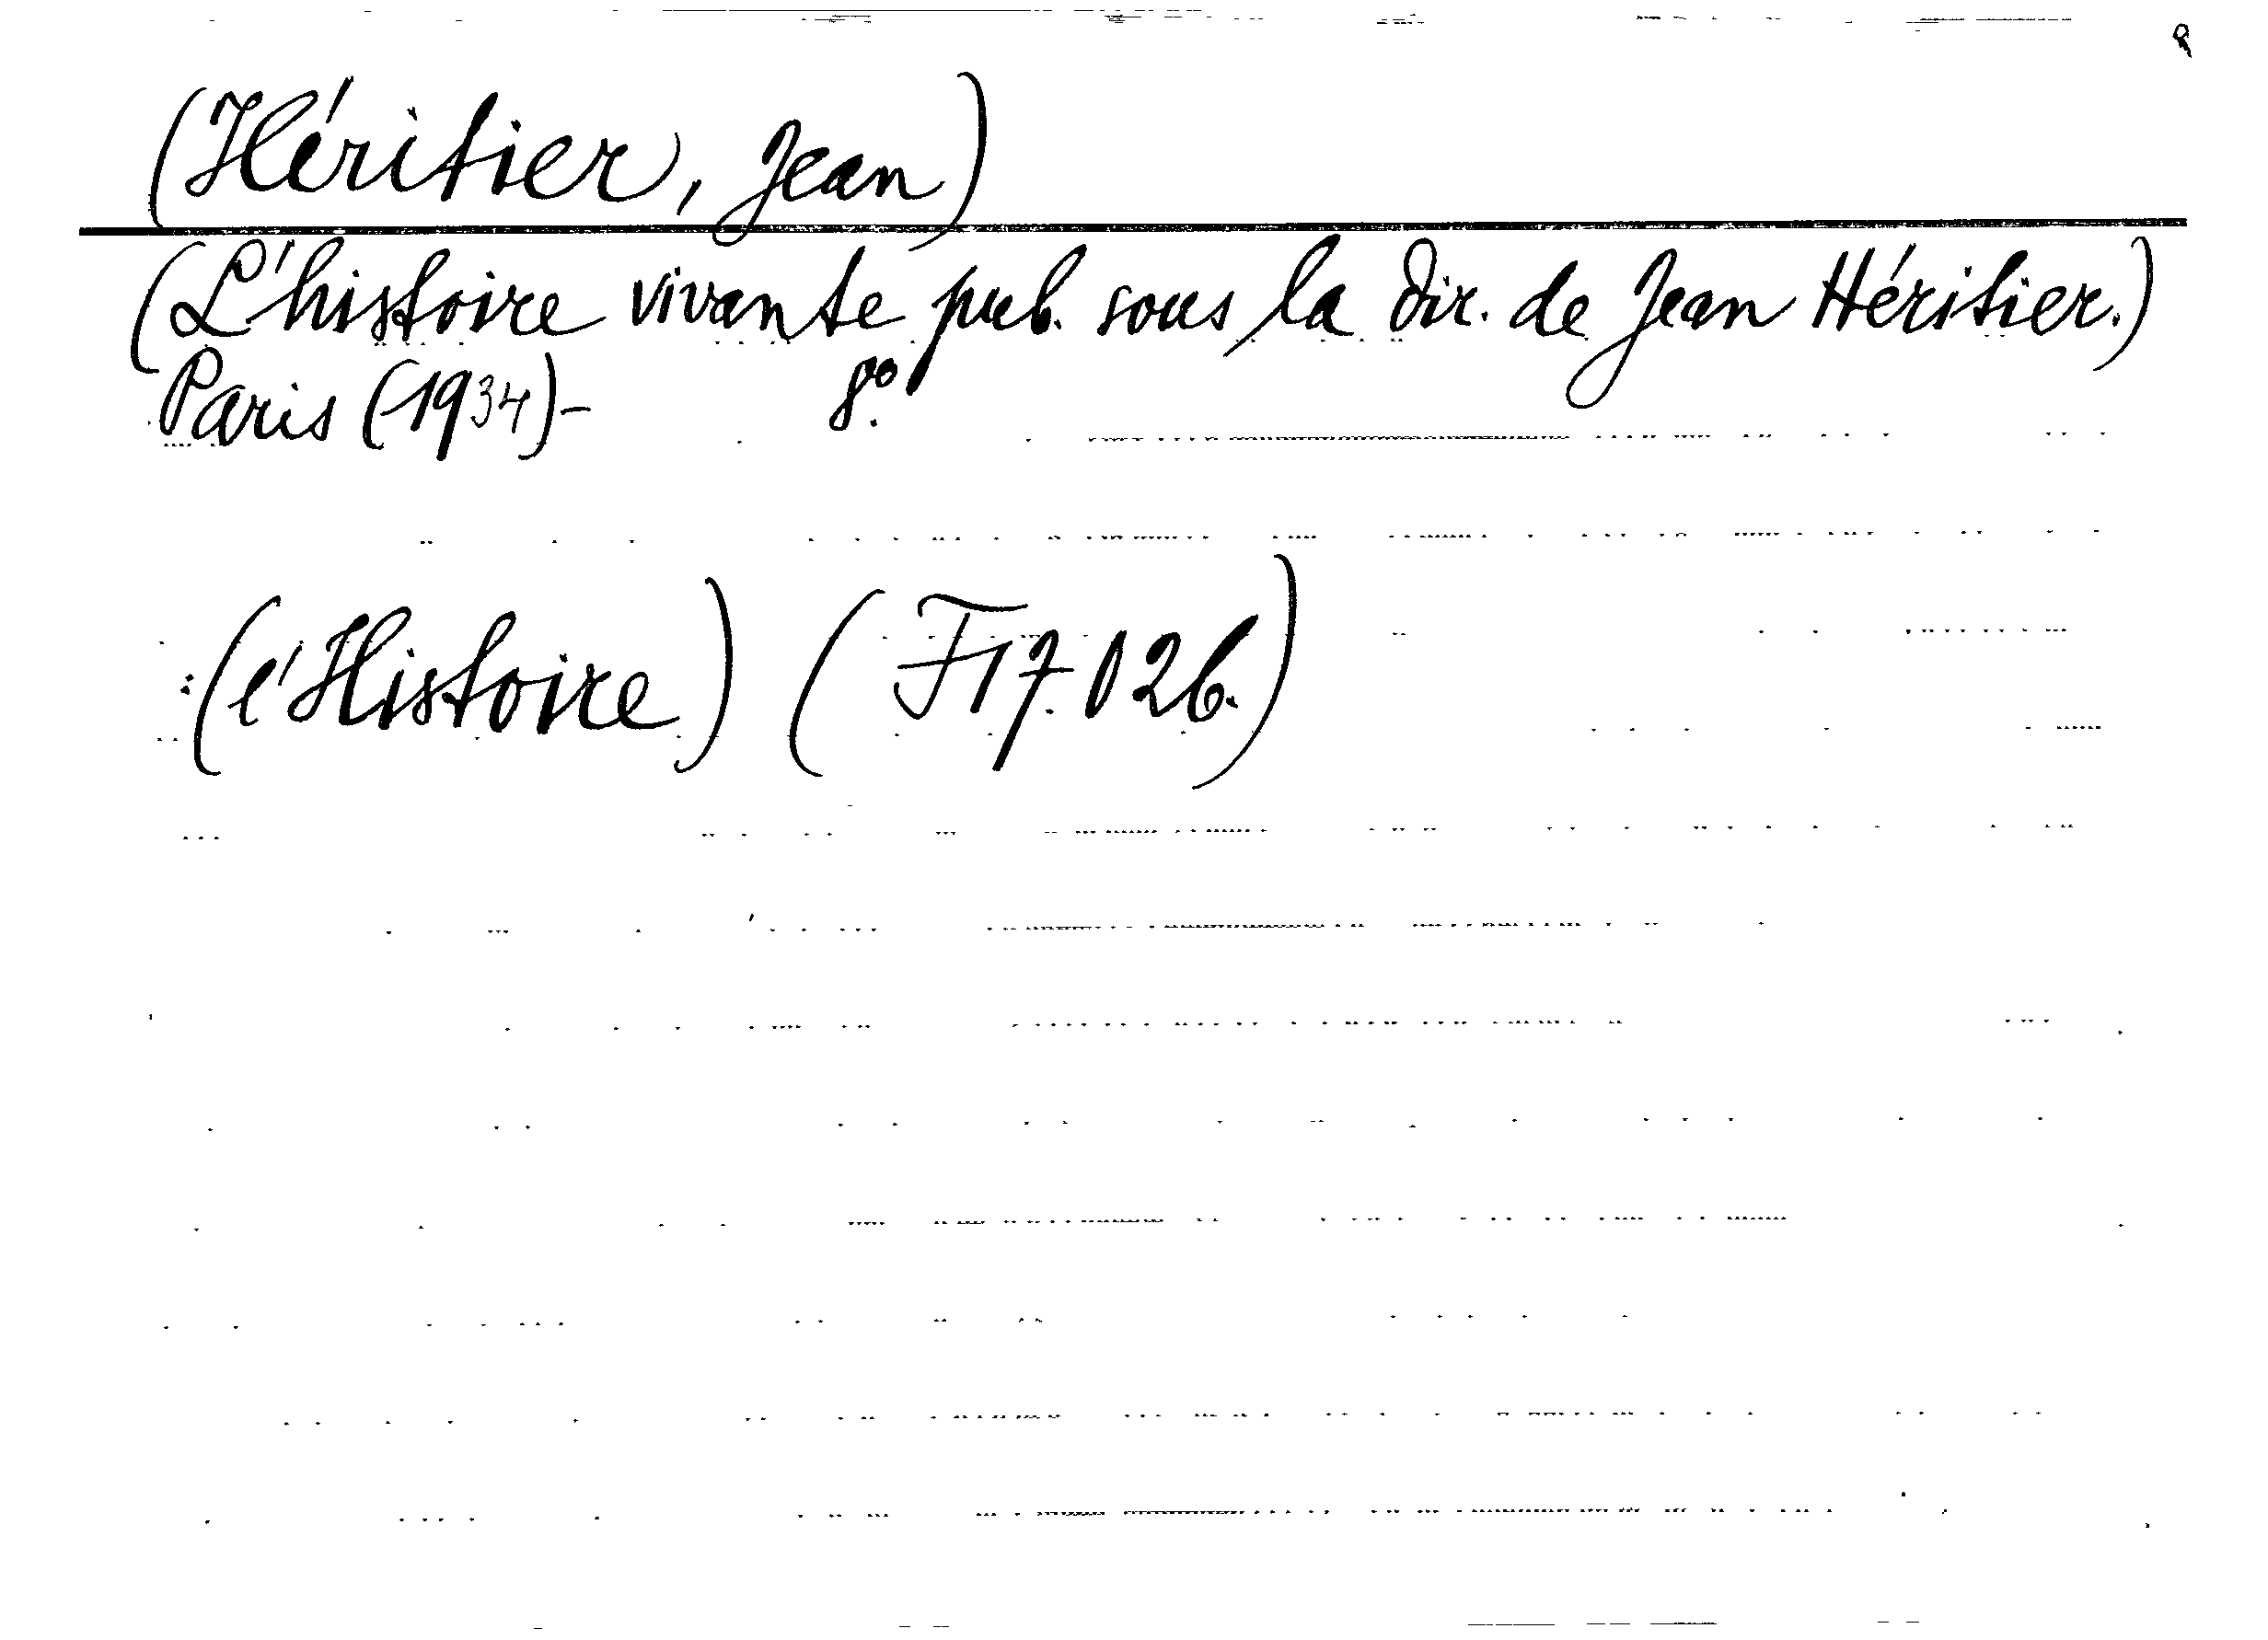 (Héritier, Jean)
(L'histoire vivante pub. sous la dir. de Jean Héritier.)
Paris (1934)- 8º.
:(l'Histoire) (F17.026.)